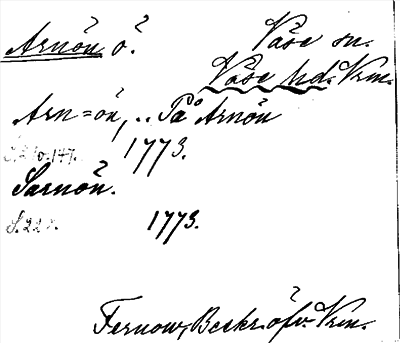 Arnön ö. Väse sn.
Väse hd. Vrm.
Arn=ön, .. På Arnön
S. 210. 147. 1773.
Sarnön.
S. 22 1773.
Fernow, Beskr. öfv. Vrm.